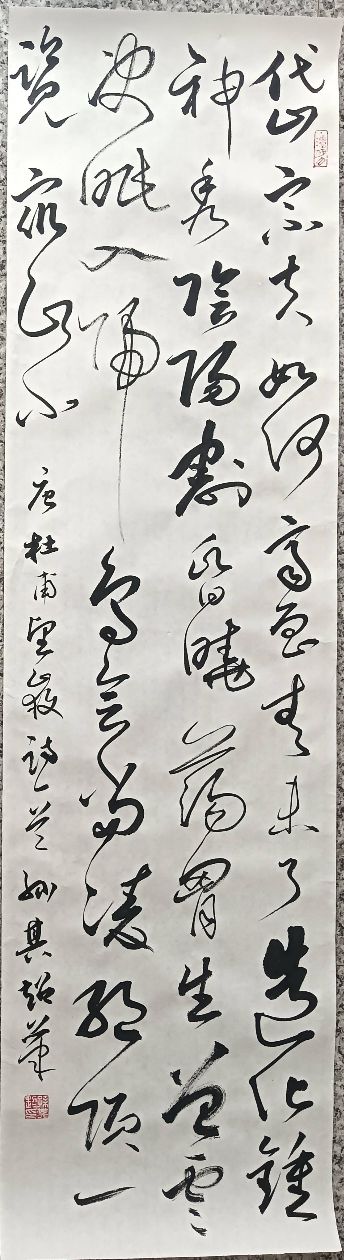 岱宗夫如何齊魯青未了造化鍾
神秀陰陽割昏曉蕩胷生曾雲
決眦入歸鳥會當凌絕頂一
覽眾山小 唐杜甫望嶽詩一首 孫其超筆